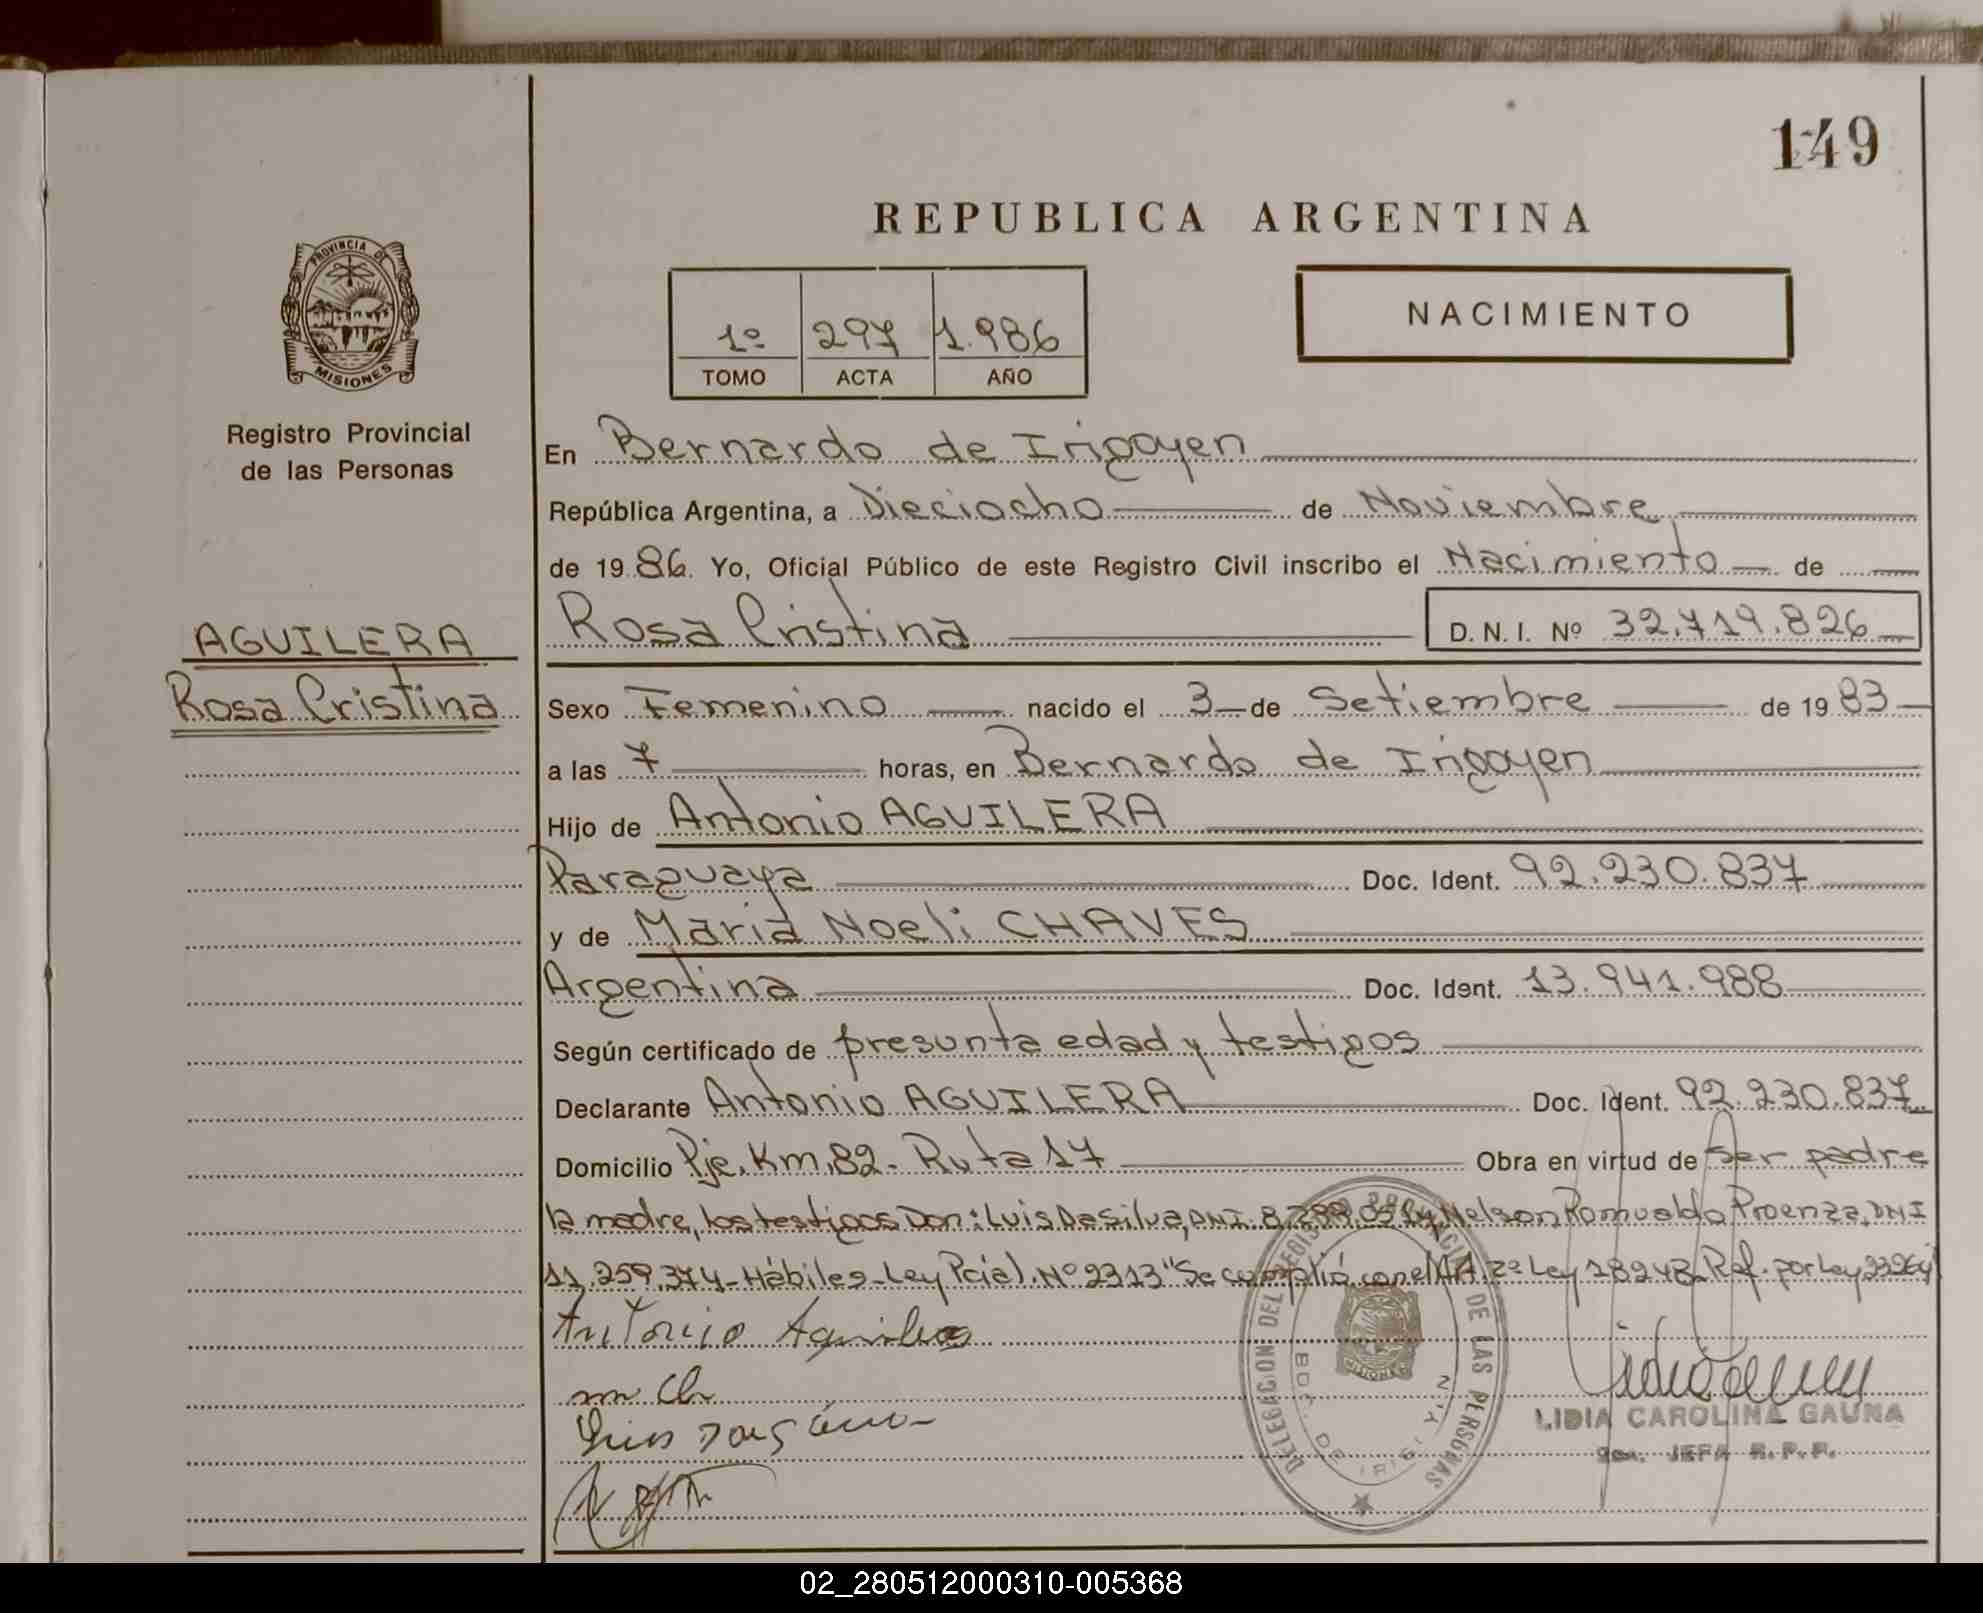 149
REPUBLICA ARGENTINA
PROVINCIA DE
MISIONES
1º 297 1.986
TOMO ACTA AÑO
NACIMIENTO
Registro Provincial
de las Personas
En Bernardo de Irigoyen
República Argentina, a Dieciocho de Noviembre
de 1986. Yo, Oficial Público de este Registro Civil inscribo el Nacimiento de
Rosa Cristina D. N. I. Nº 32.719.826
AGUILERA
Rosa Cristina
Sexo Femenino nacido el 3 de Setiembre de 1983
a las 7 horas, en Bernardo de Irigoyen
Hijo de Antonio AGUILERA
Paraguaya Doc. Ident. 92.230.837
y de Maria Noeli CHAVES
Argentina Doc. Ident. 13.941.988
Según certificado de presunta edad y testigos
Declarante Antonio AGUILERA Doc. Ident. 92.230.837
Domicilio Pje. Km. 82. Ruta 17 Obra en virtud de Ser padre
la madre, los testigos Don: Luis Da Silva, DNI. Nelson Romualdo Proenza, DNI
11.259.374-Hábiles-Ley Pcial. Nº 2313 "Se cumplió con el Ley 18248. Ref. por Ley
Antonio Aguilera
DELEGACION DEL REGISTRO PROVINCIAL DE LAS PERSONAS
BDO. DE IRIGOYEN
MISIONES
LIDIA CAROLINA GAUNA
JEFA R. P. P.
02_280512000310-005368